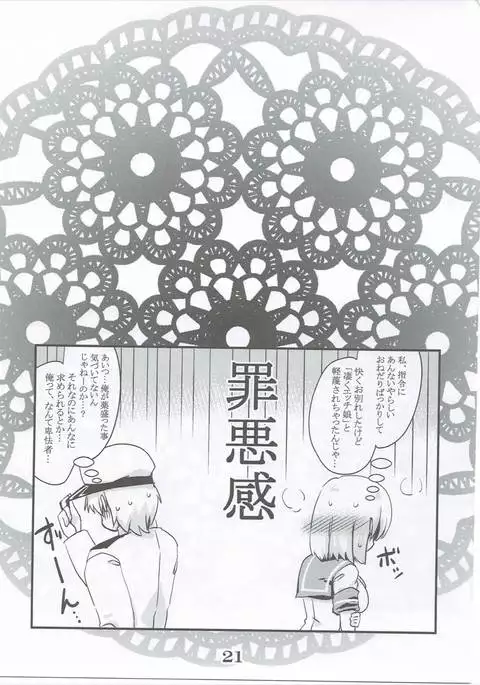 私、指令に
あんないやらしい
おねだりばっかりして
快くお別れしたけど
「凄くエッチ娘」と
軽蔑されちゃったんじゃ…
罪悪感
あいつ…俺が薬盛った事
気づいてないん
じゃねーのか…？
それなのにあんなに
求められるとか…
俺って、なんて卑怯者…
ボッ
ずずーん…
21